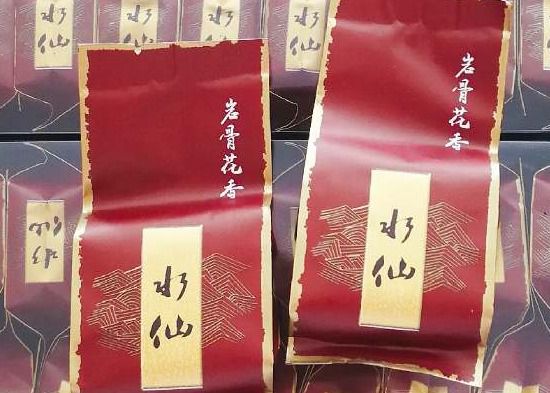 水仙
水仙
水仙
水仙
岩骨花香
水仙
岩骨花香
水仙
水仙